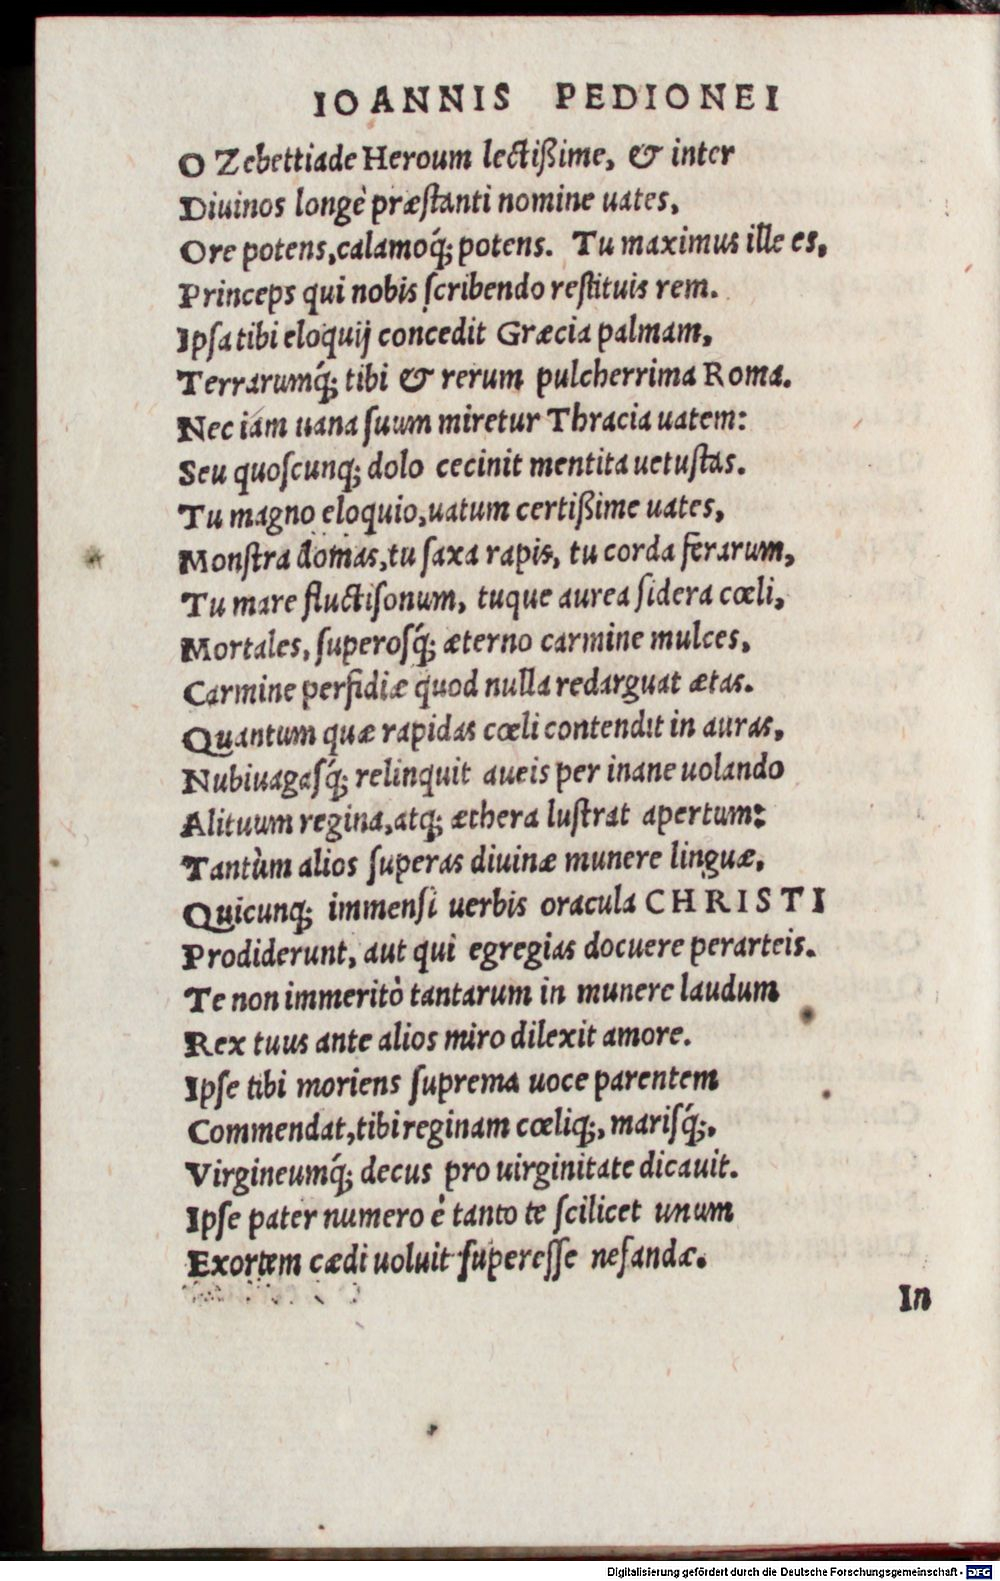 IOANNIS PEDIONEI
O Zebettiade Heroum lectißime, & inter
Diuinos longè præſtanti nomine uates,
Ore potens, calamoq́; potens. Tu maximus ille es,
Princeps qui nobis ſcribendo reſtituis rem.
Ipſa tibi eloquij concedit Græcia palmam,
Terrarumq́; tibi & rerum pulcherrima Roma.
Nec iám uana ſuum miretur Thracia uatem:
Seu quoſcunq; dolo cecinit mentita uetuſtas.
Tu magno eloquio, uatum certißime uates,
Monſtra domas, tu ſaxa rapis, tu corda ferarum,
Tu mare fluctiſonum, tuque aurea ſidera cœli,
Mortales, ſuperoſq́; æterno carmine mulces,
Carmine perfidiæ quod nulla redarguat ætas.
Quantum quæ rapidas cœli contendit in auras,
Nubiuagaſq́; relinquit aueis per inane uolando
Alituum regina, atq; æthera luſtrat apertum:
Tantùm alios ſuperas diuinæ munere linguæ,
Quicunq; immenſi uerbis oracula CHRISTI
Prodiderunt, aut qui egregias docuere perarteis.
Te non immeritò tantarum in munere laudum
Rex tuus ante alios miro dilexit amore.
Ipſe tibi moriens ſuprema uoce parentem
Commendat, tibi reginam cœliq;, mariſq́;,
Virgineumq́; decus pro uirginitate dicauit.
Ipſe pater numero è tanto te ſcilicet unum
Exortem cædi uoluit ſupereſſe nefandæ.
In
Digitalisierung gefördert durch die Deutsche Forschungsgemeinschaft - DFG